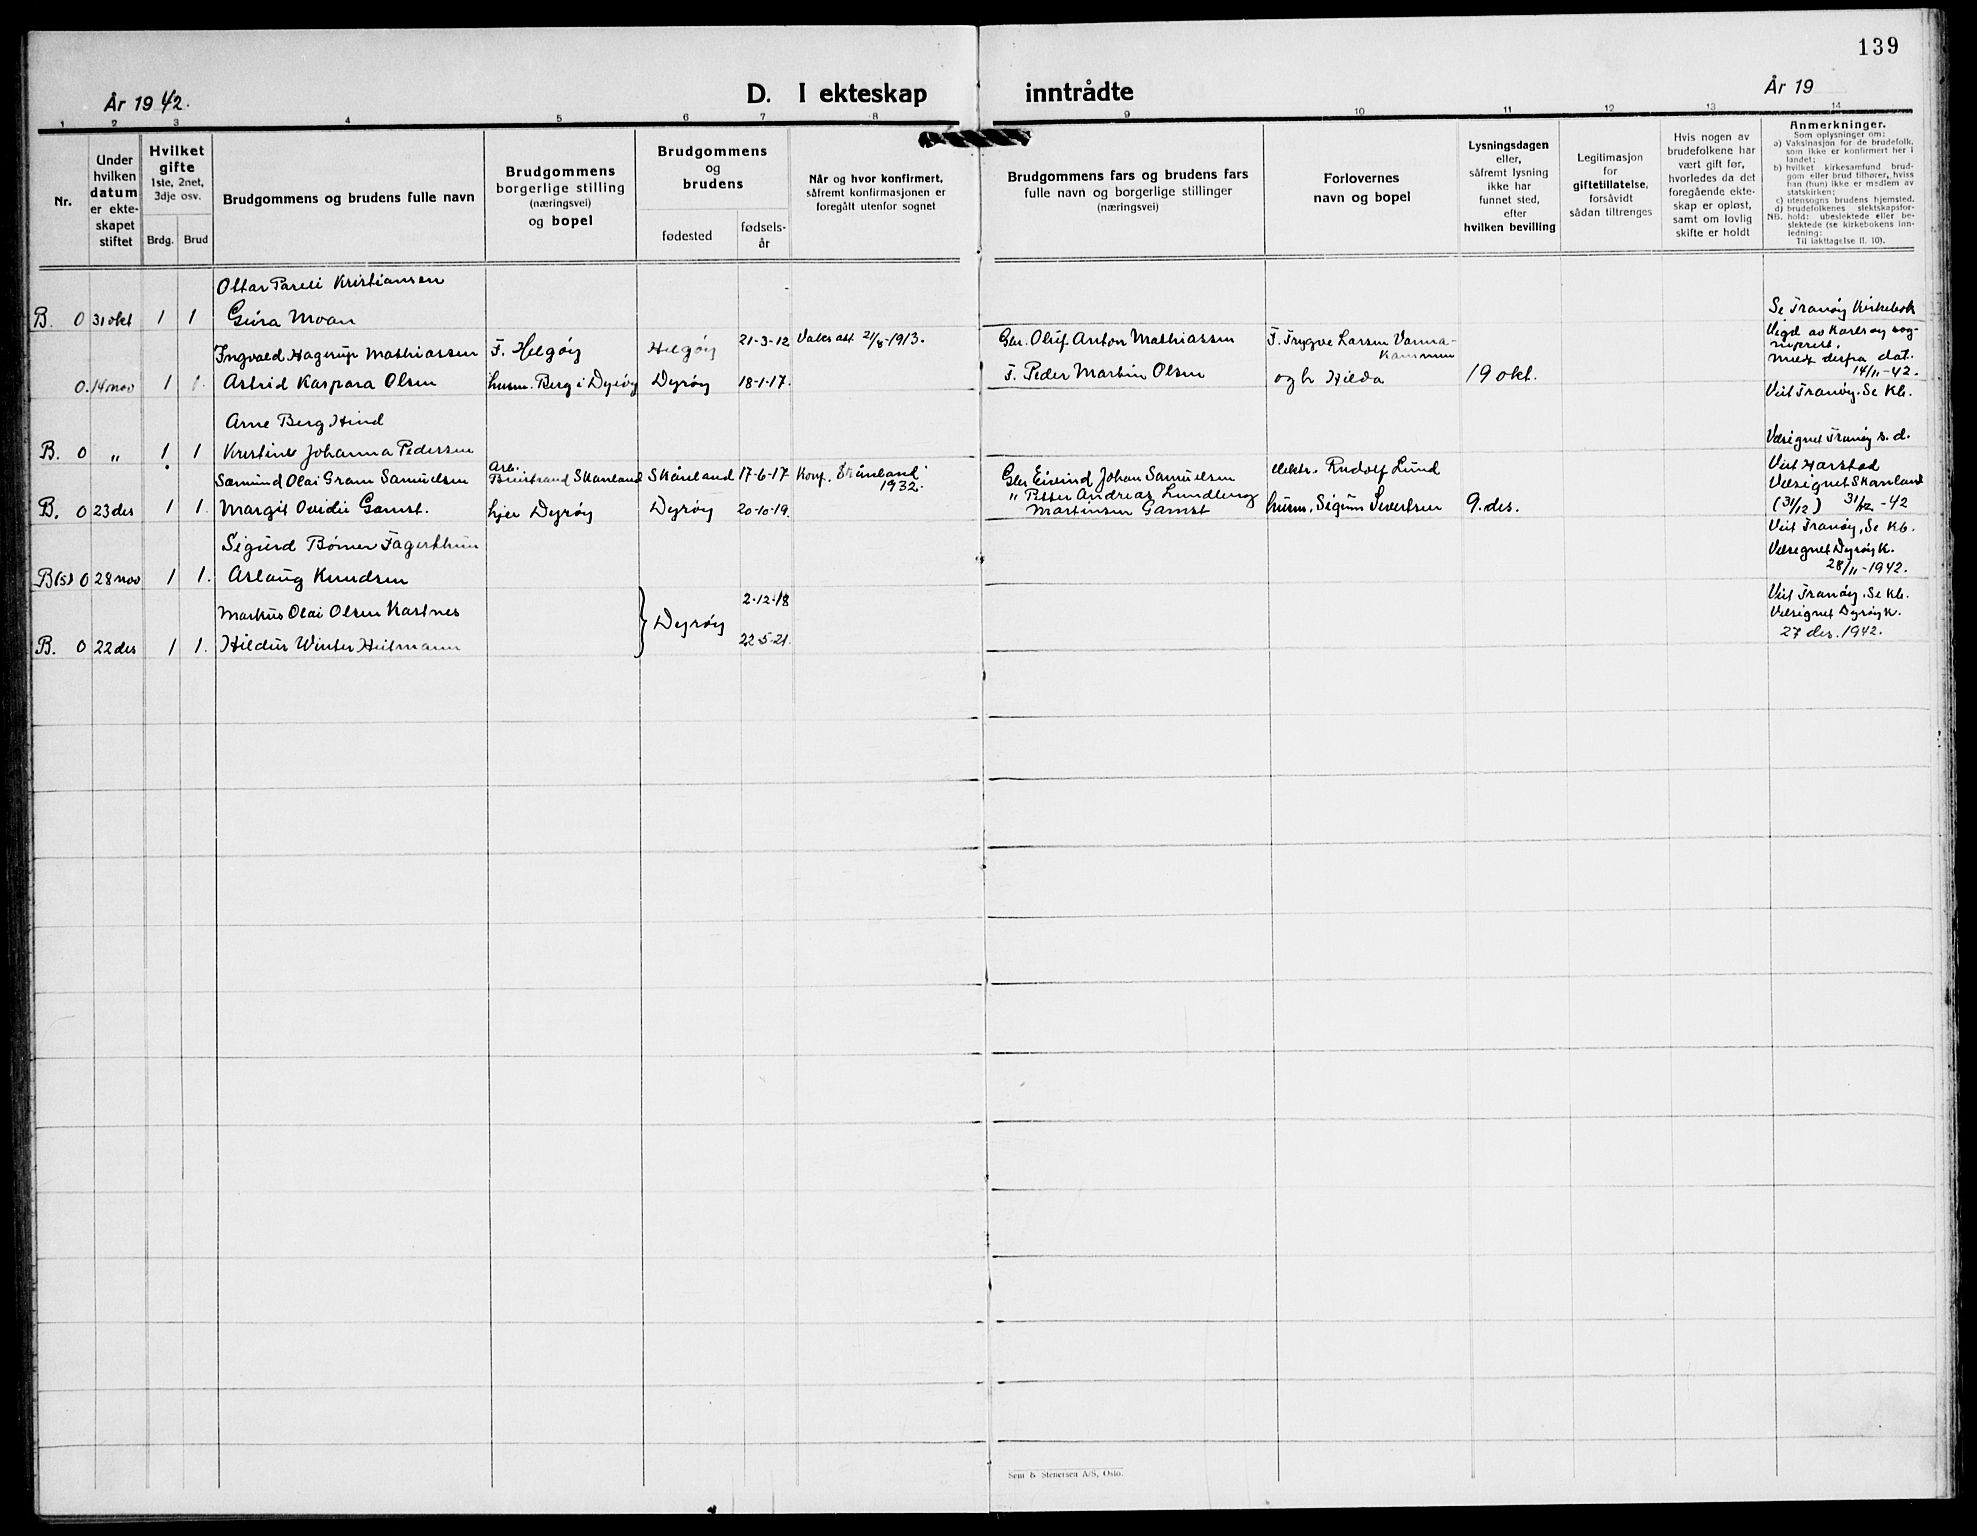 139
År 1942.
D. I ekteskap inntrådte
År 19
1 2 3 4 5 6 7 8 9 10 11 12 13 14
Nr.
Under hvilken datum er ekte-skapet stiftet
Hvilket gifte
1ste, 2net, 3dje osv.
Brdg. Brud
Brudgommens og brudens fulle navn
Brudgommens borgerlige stilling (næringsvei) og bopel
Brudgommens og brudens
fødested
fødsels-år
Når og hvor konfirmert,
såfremt konfirmasjonen er
foregått utenfor sognet
Brudgommens fars og brudens fars
fulle navn og borgerlige stillinger
(næringsvei)
Forlovernes
navn og bopel
Lysningsdagen
eller,
såfremt lysning
ikke har
funnet sted,
efter
hvilken bevilling
Legitimasjon
for
giftetillatelse,
forsåvidt
sådan tiltrenges
Hvis nogen av
brudefolkene har
vært gift før,
hvorledes da det
foregående ekte-
skap er opløst,
samt om lovlig
skifte er holdt
Anmerkninger.
Som oplysninger om:
a) Vaksinasjon for de brudefolk,
som ikke er konfirmert her i
landet;
b) hvilket kirkesamfund brud-
gom eller brud tilhører, hviss
han (hun) ikke er medlem av
statskirken;
c) utensogns brudens hjemsted.
d) brudefolkenes slektskapsfor-
NB. hold: ubeslektede eller be-
slektede (se kirkebokens inn-
ledning:
Til iakttagelse II. 10).
Ottar Kristiansen
B. 0 31 okt 1 1 Moan
Se Tranøy Kirkebok
Ingvald Hagerup Mathiassen F. Helgøy Helgøy 21-3-12 21/8-1913. Oluf Anton Mathiassen F. Trygve Larsen
Vigd av Karlsøy sog-
0. 14 nov 1 1. Astrid Kaspara Olsen husm. Berg i Dyrøy Dyrøy 18-1-17. F. Peder Martin Olsen og h Hilda 19 okt.
derfra dat.
14/11-42.
Viet Tranøy. Se Kb.
Arne Berg Hind
B. 0 " 1 1 Kristine Johanna Pedersen
Velsignet Tranøy s. d.
Sæmund Olai Gram Samuelsen Arb. Skånland Skånland 17-6-17 Konf. Skånland 1932. Eivind Johan Samuelsen elektr. Rudolf Lund
Viet Harstad
Velsignet Skånland
B. 0 23 des 1 1. Margit Ovidie Gamst. hjer Dyrøy Dyrøy 20-10-19. " Petter Andreas Lundberg
Martinsen Gamst husm. Sigrun Sivertsen 9. des.
(31/12) 31/12-42
Sigurd Bømer Fagerthun
Viet Tranøy, Se Kb.
Velsignet Dyrøy K.
28/11-1942.
B(s) 0 28 nov 1 1. Aslaug Knudsen
Markus Olai Olsen Kastnes Dyrøy 2-12-18
Viet Tranøy, Se Kb.
Velsignet Dyrøy K.
27 des. 1942.
B. 0 22 des 1 1. Hildur Winter Heitmann 22-5-21.
Sem & Stenersen A/S, Oslo.